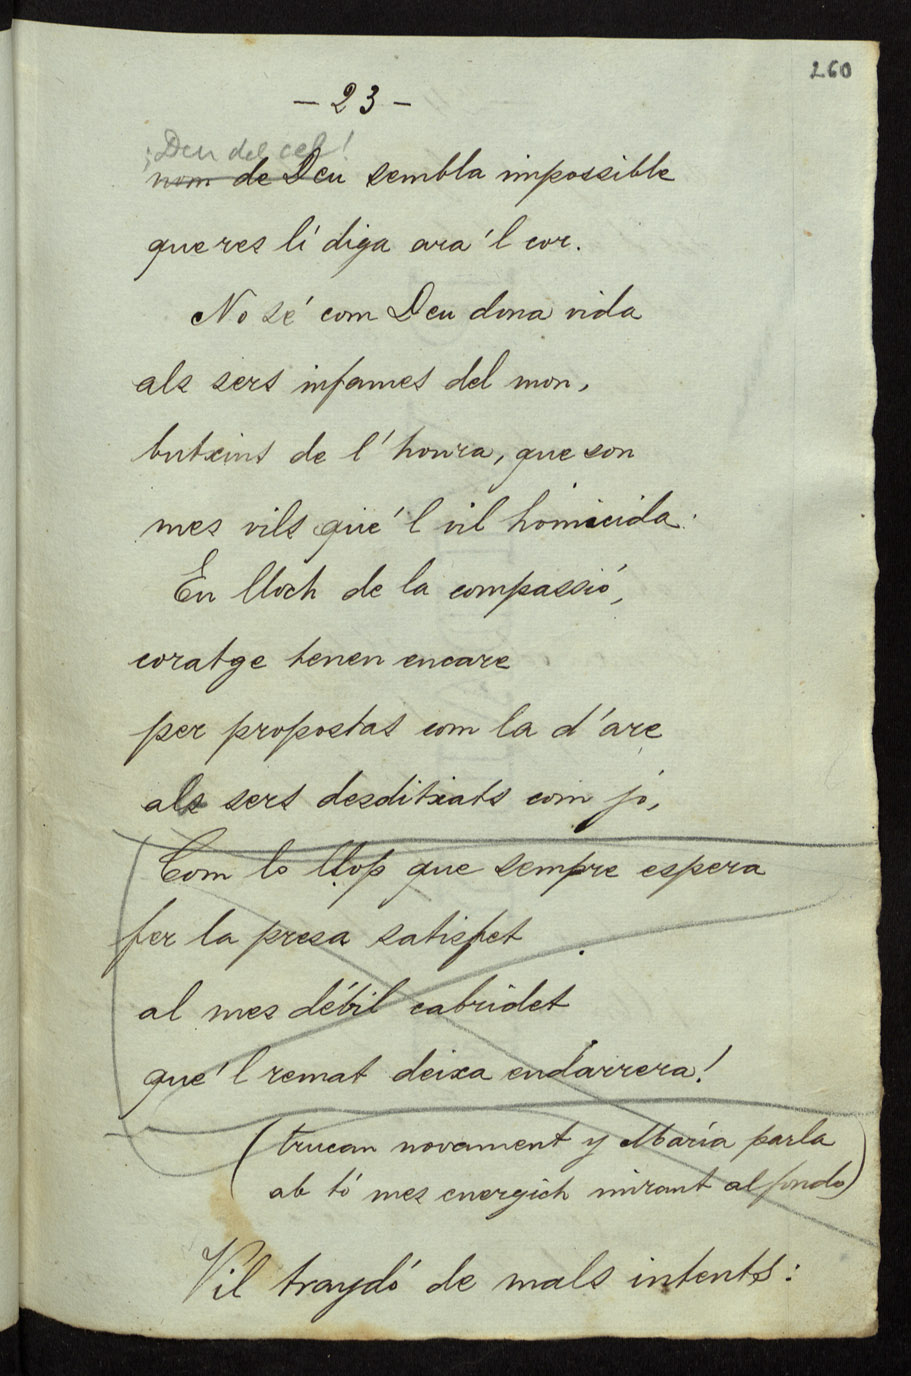 260
- 23 -
¡Deu del cel!
nom de Deu sembla impossible
que res li diga ara 'l cor.
No sé com Deu dona vida
als sers infames del mon,
butxins de l' honra, que son
mes vils que 'l vil homicida.
En lloch de la compassió,
coratge tenen encare
per propostas com la d' are
als sers desditxats com jo,
Com lo llop que sempre espera
fer la presa satisfet
al mes débil cabridet
que 'l remat deixa endarrera!
(trucan novament y María parla
ab tó mes energich mirant al fondo)
Vil traydó de mals intents: